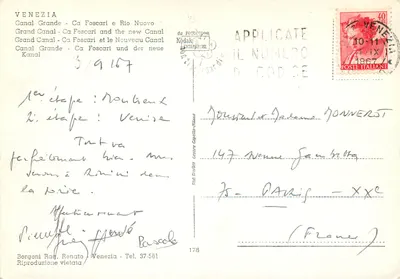 VENEZIA
Canal Grande - Ca Foscari e Rio Nuovo
Grand Canal - Ca Foscari and the new Canal
Grand Canal - Ca Foscari et le Nouveau Canal
Canal Grande - Ca Foscari und der neue
Kanal
3 9 67
1ère étape : Montreux
2e étape : Venise
Tout va
parfaitement bien. Nous
serons à Rimini dans
la soirée.
Affectueusement
Pierrette
Pascale
Bergoni Rag. Renato - Venezia - Tel. 37-581
Riproduzione vietata
178
APPLICATE
IL NUMERO
DI CODICE
VENEZIA
POSTE ITALIANE
40
Monsieur et Madame MONNEROT
147 Avenue Gambetta
75 - PARIS - XXe
(France)